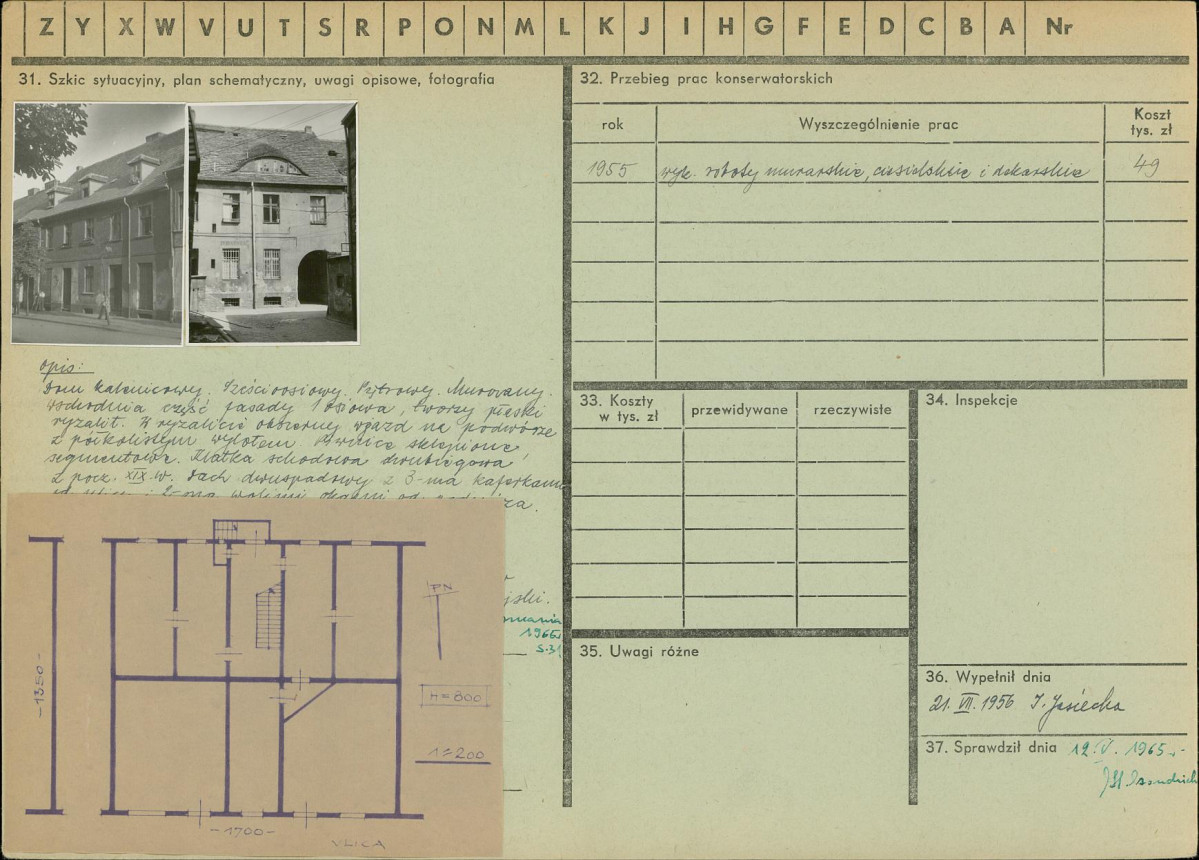 Z Y X W V U T S R P O N M L K J I H G F E D C B A Nr
31. Szkic sytuacyjny, plan schematyczny, uwagi opisowe, fotografia
opis:
Dom kalenicowy. Sześcioosiowy. Piętrowy. Murowany.
wschodnia część fasady 1 osiowa, tworzy płaski
ryzalit. W ryzalicie obszerny wjazd na podwórze
z półkolistym wylotem. Piwnice sklepione
segmentowe. Klatka schodowa dwubiegowa,
z pocz. XIX w. Dach dwuspadowy z 3-ma kaferkami
1966
S.31
PN
-1350-
h=800
1=200
-1700-
VLICA
32. Przebieg prac konserwatorskich
rok Wyszczególnienie prac Koszt tys. zł
1955 wyk. roboty murarskie, ciesielskie i dekarskie 49
33. Koszty w tys. zł przewidywane rzeczywiste
34. Inspekcje
35. Uwagi różne
36. Wypełnił dnia
21. VII. 1956 I. Jasiecka
37. Sprawdził dnia 12.V.1965 r.